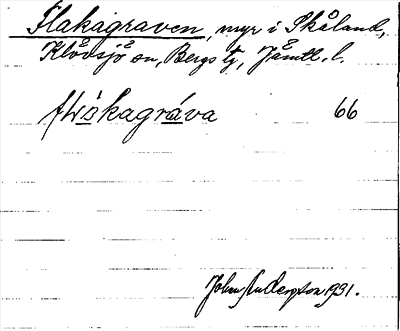 Flakagraven, myr i Skåland,
Klövsjö sn, Bergs tg, Jämtl. l.
kagráva 66
John Anderson 1931.